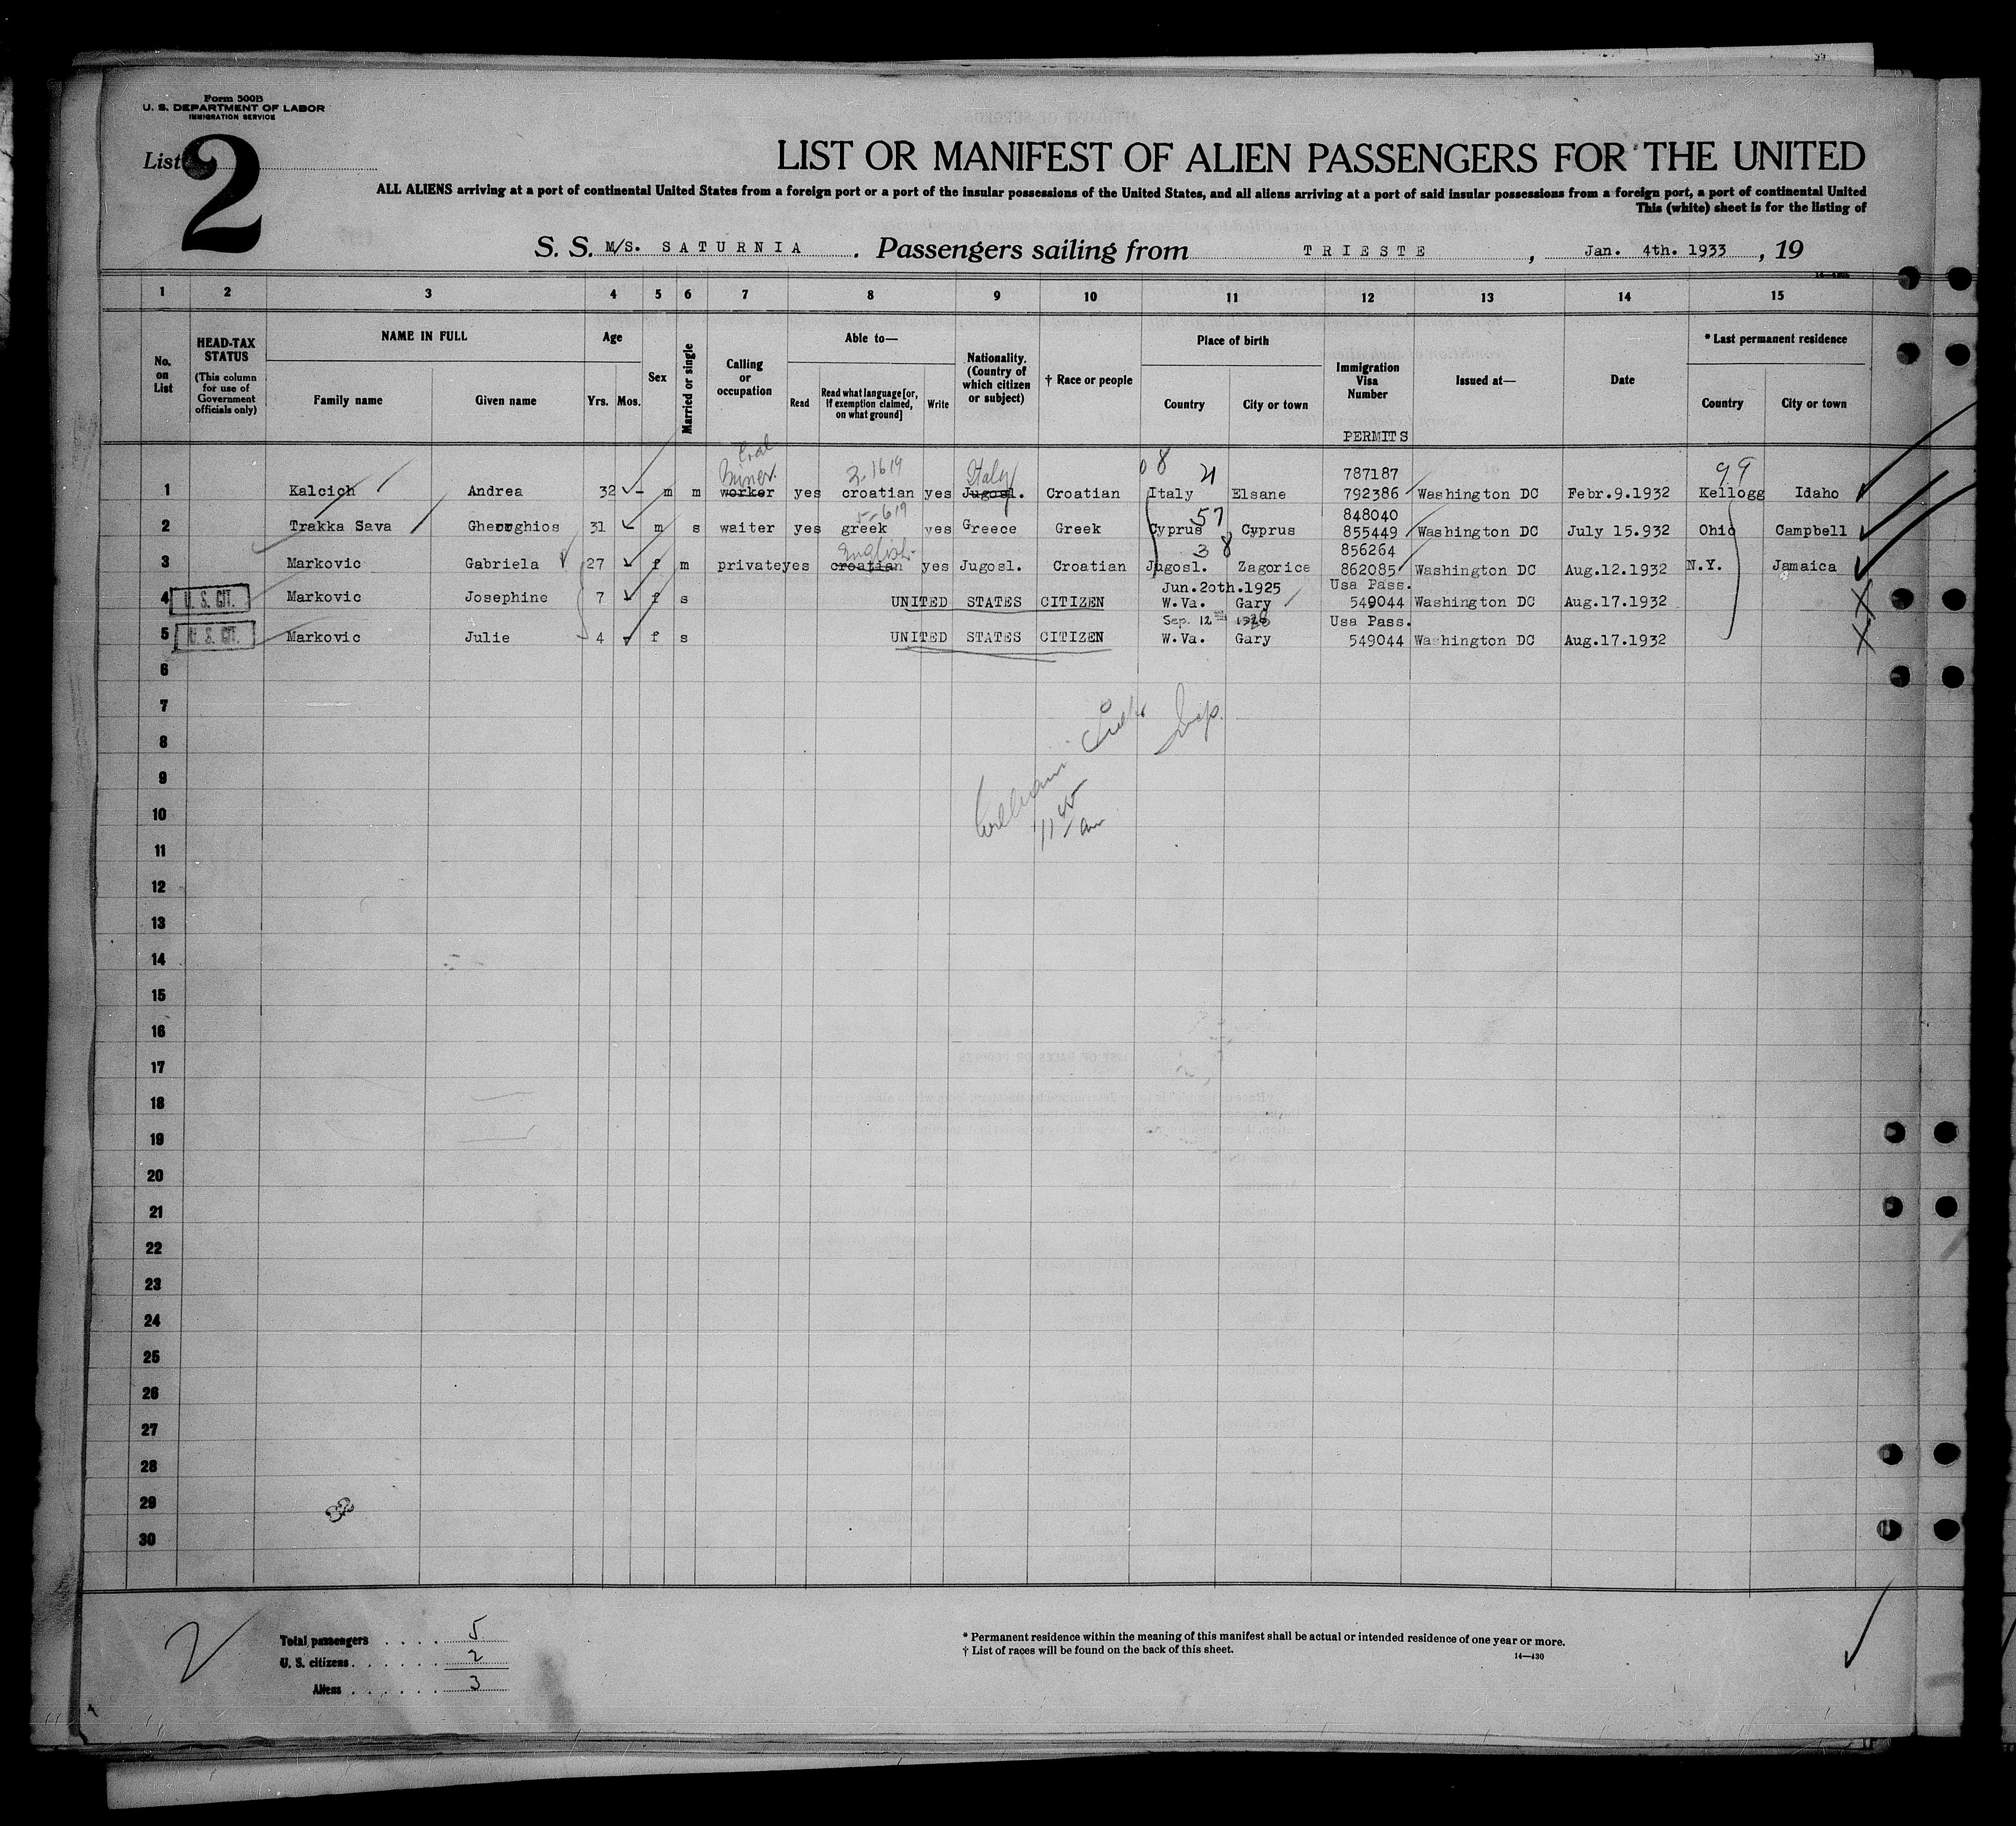 Form 500B
U. S. DEPARTMENT OF LABOR
IMMIGRATION SERVICE
List 2
LIST OR MANIFEST OF ALIEN PASSENGERS FOR THE UNITED
ALL ALIENS arriving at a port of continental United States from a foreign port or a port of the insular possessions of the United States, and all aliens arriving at a port of said insular possessions from a foreign port, a port of continental United
This (white) sheet is for the listing of
S. S. M/S. SATURNIA. Passengers sailing from TRIESTE, Jan. 4th. 1933, 19
1 2 3 4 5 6 7 8 9 10 11 12 13 14 15
No. on List
HEAD-TAX STATUS
(This column for use of Government officials only)
NAME IN FULL
Family name Given name
Age
Yrs. Mos.
Sex
Married or single
Calling or occupation
Able to—
Read Read what language [or, if exemption claimed, on what ground] Write
Nationality. (Country of which citizen or subject)
† Race or people
Place of birth
Country City or town
Immigration Visa Number
PERMITS
Issued at—
Date
* Last permanent residence
Country City or town
Coal
Miner 2-1619 Italy 08 21 787187 99
1 Kalcich Andrea 32 - m m worker yes croatian yes Jugosl. Croatian Italy Elsane 792386 Washington DC Febr.9.1932 Kellogg Idaho
5-619 57 848040
2 Trakka Sava Gheorghios 31 m s waiter yes greek yes Greece Greek Cyprus Cyprus 855449 Washington DC July 15.932 Ohio Campbell
English 38 856264
3 Markovic Gabriela 27 f m private yes croatian yes Jugosl. Croatian Jugosl. Zagorice 862085 Washington DC Aug.12.1932 N.Y. Jamaica
Jun.20th.1925 Usa Pass.
4 U. S. CIT. Markovic Josephine 7 f s UNITED STATES CITIZEN W.Va. Gary 549044 Washington DC Aug.17.1932
Sep. 12 Usa Pass.
5 U. S. CIT. Markovic Julie 4 f s UNITED STATES CITIZEN W.Va. Gary 549044 Washington DC Aug.17.1932
6
7
8
William Insp.
9
10
11 45 am
11
12
13
14
15
16
17
18
19
20
21
22
23
24
25
26
27
28
29
30
2
Total passengers . . . . 5
U. S. citizens . . . . . . 2
Aliens . . . . . . 3
* Permanent residence within the meaning of this manifest shall be actual or intended residence of one year or more.
† List of races will be found on the back of this sheet.
14—430